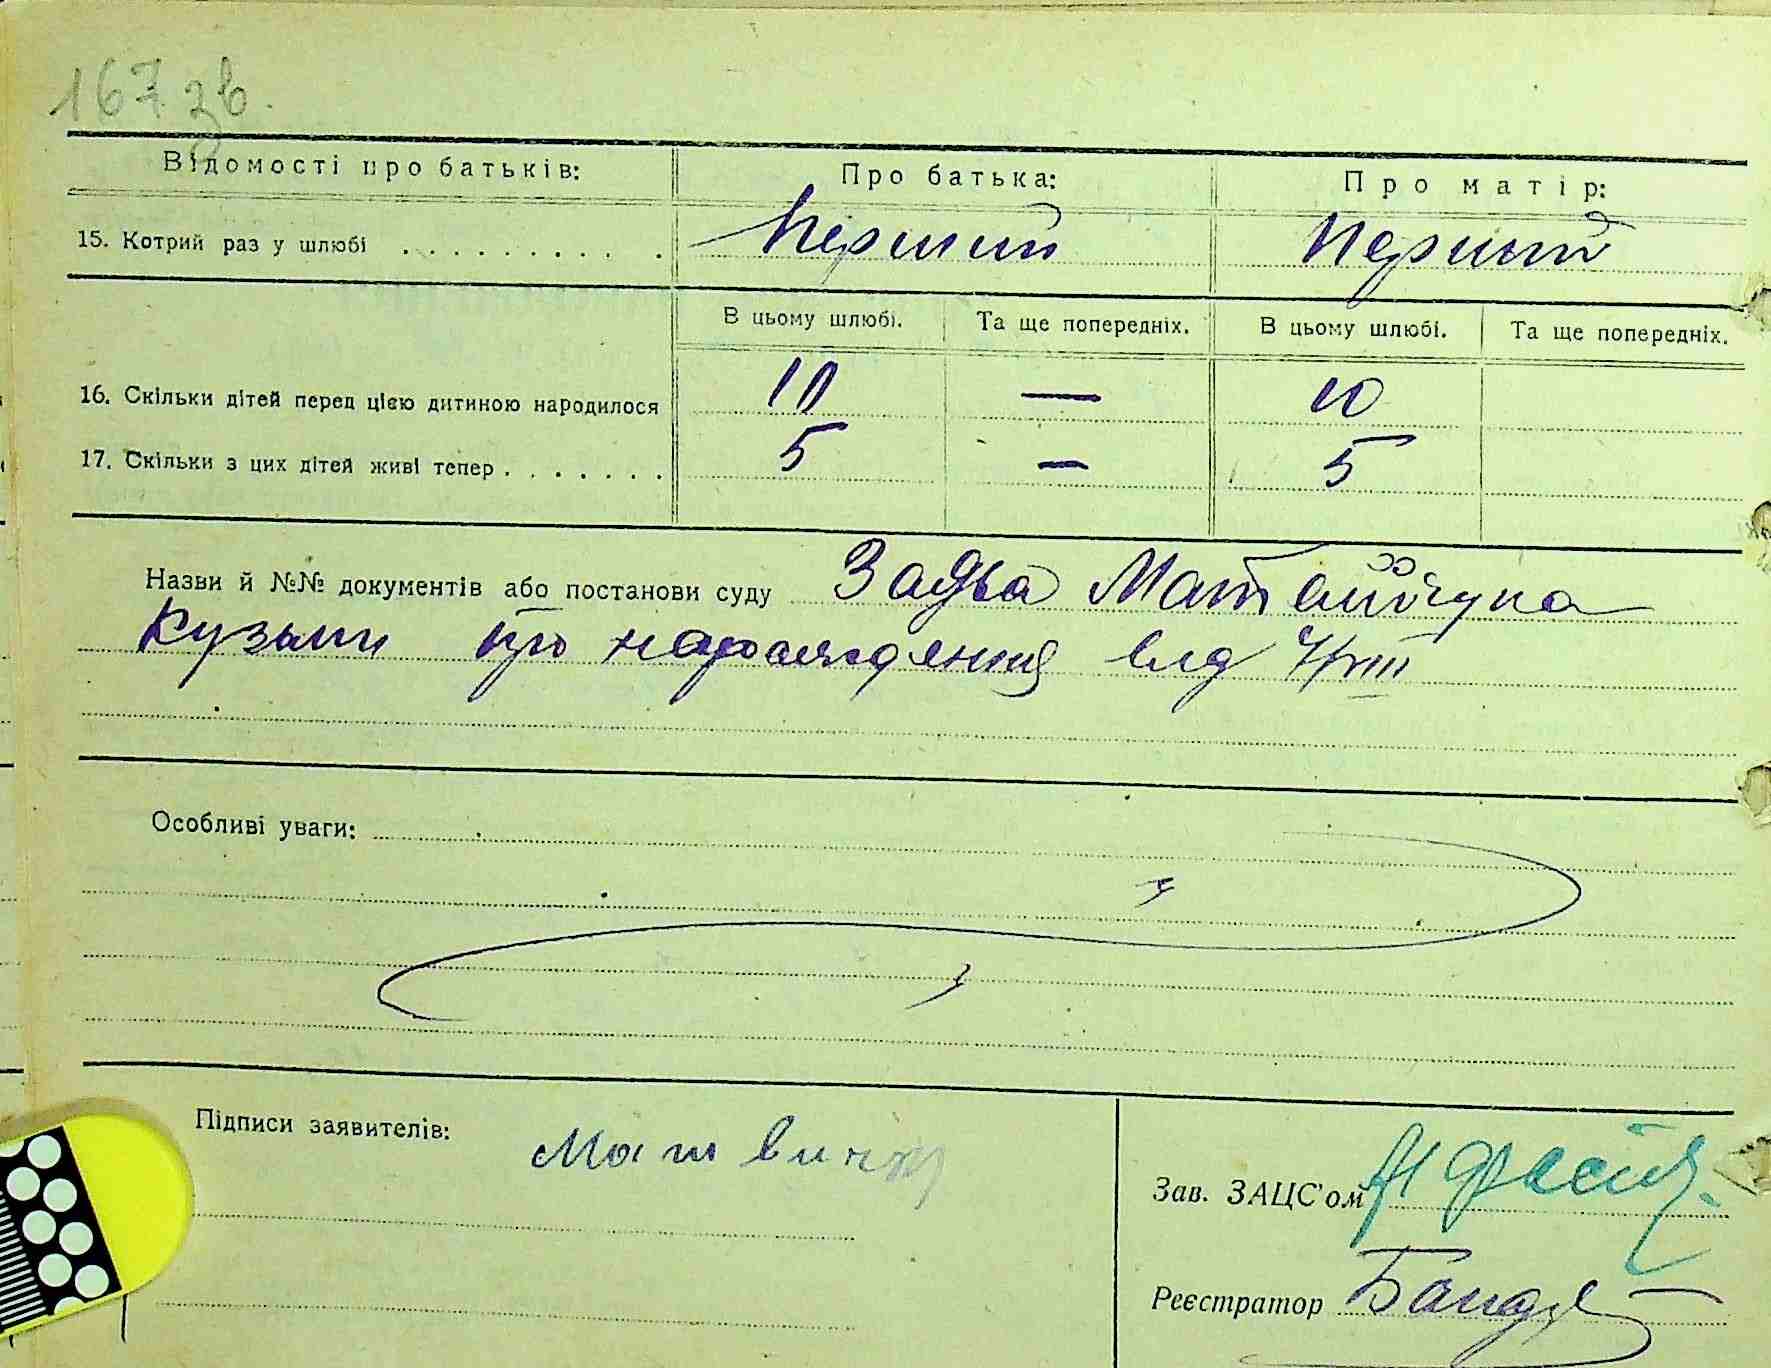 167 зв.
Відомості про батьків: Про батька: Про матір:
15. Котрий раз у шлюбі . . . . . . . . . . Перший Перший
В цьому шлюбі. Та ще попередніх. В цьому шлюбі. Та ще попередніх.
16. Скільки дітей перед цією дитиною народилося 10 — 10
17. Скільки з цих дітей живі тепер . . . . . . . 5 — 5
Назви й №№ документів або постанови суду Заява
Кузьми про нарождення від 7/VIII
Особливі уваги:
Підписи заявителів:
Зав. ЗАЦС'ом
Реєстратор